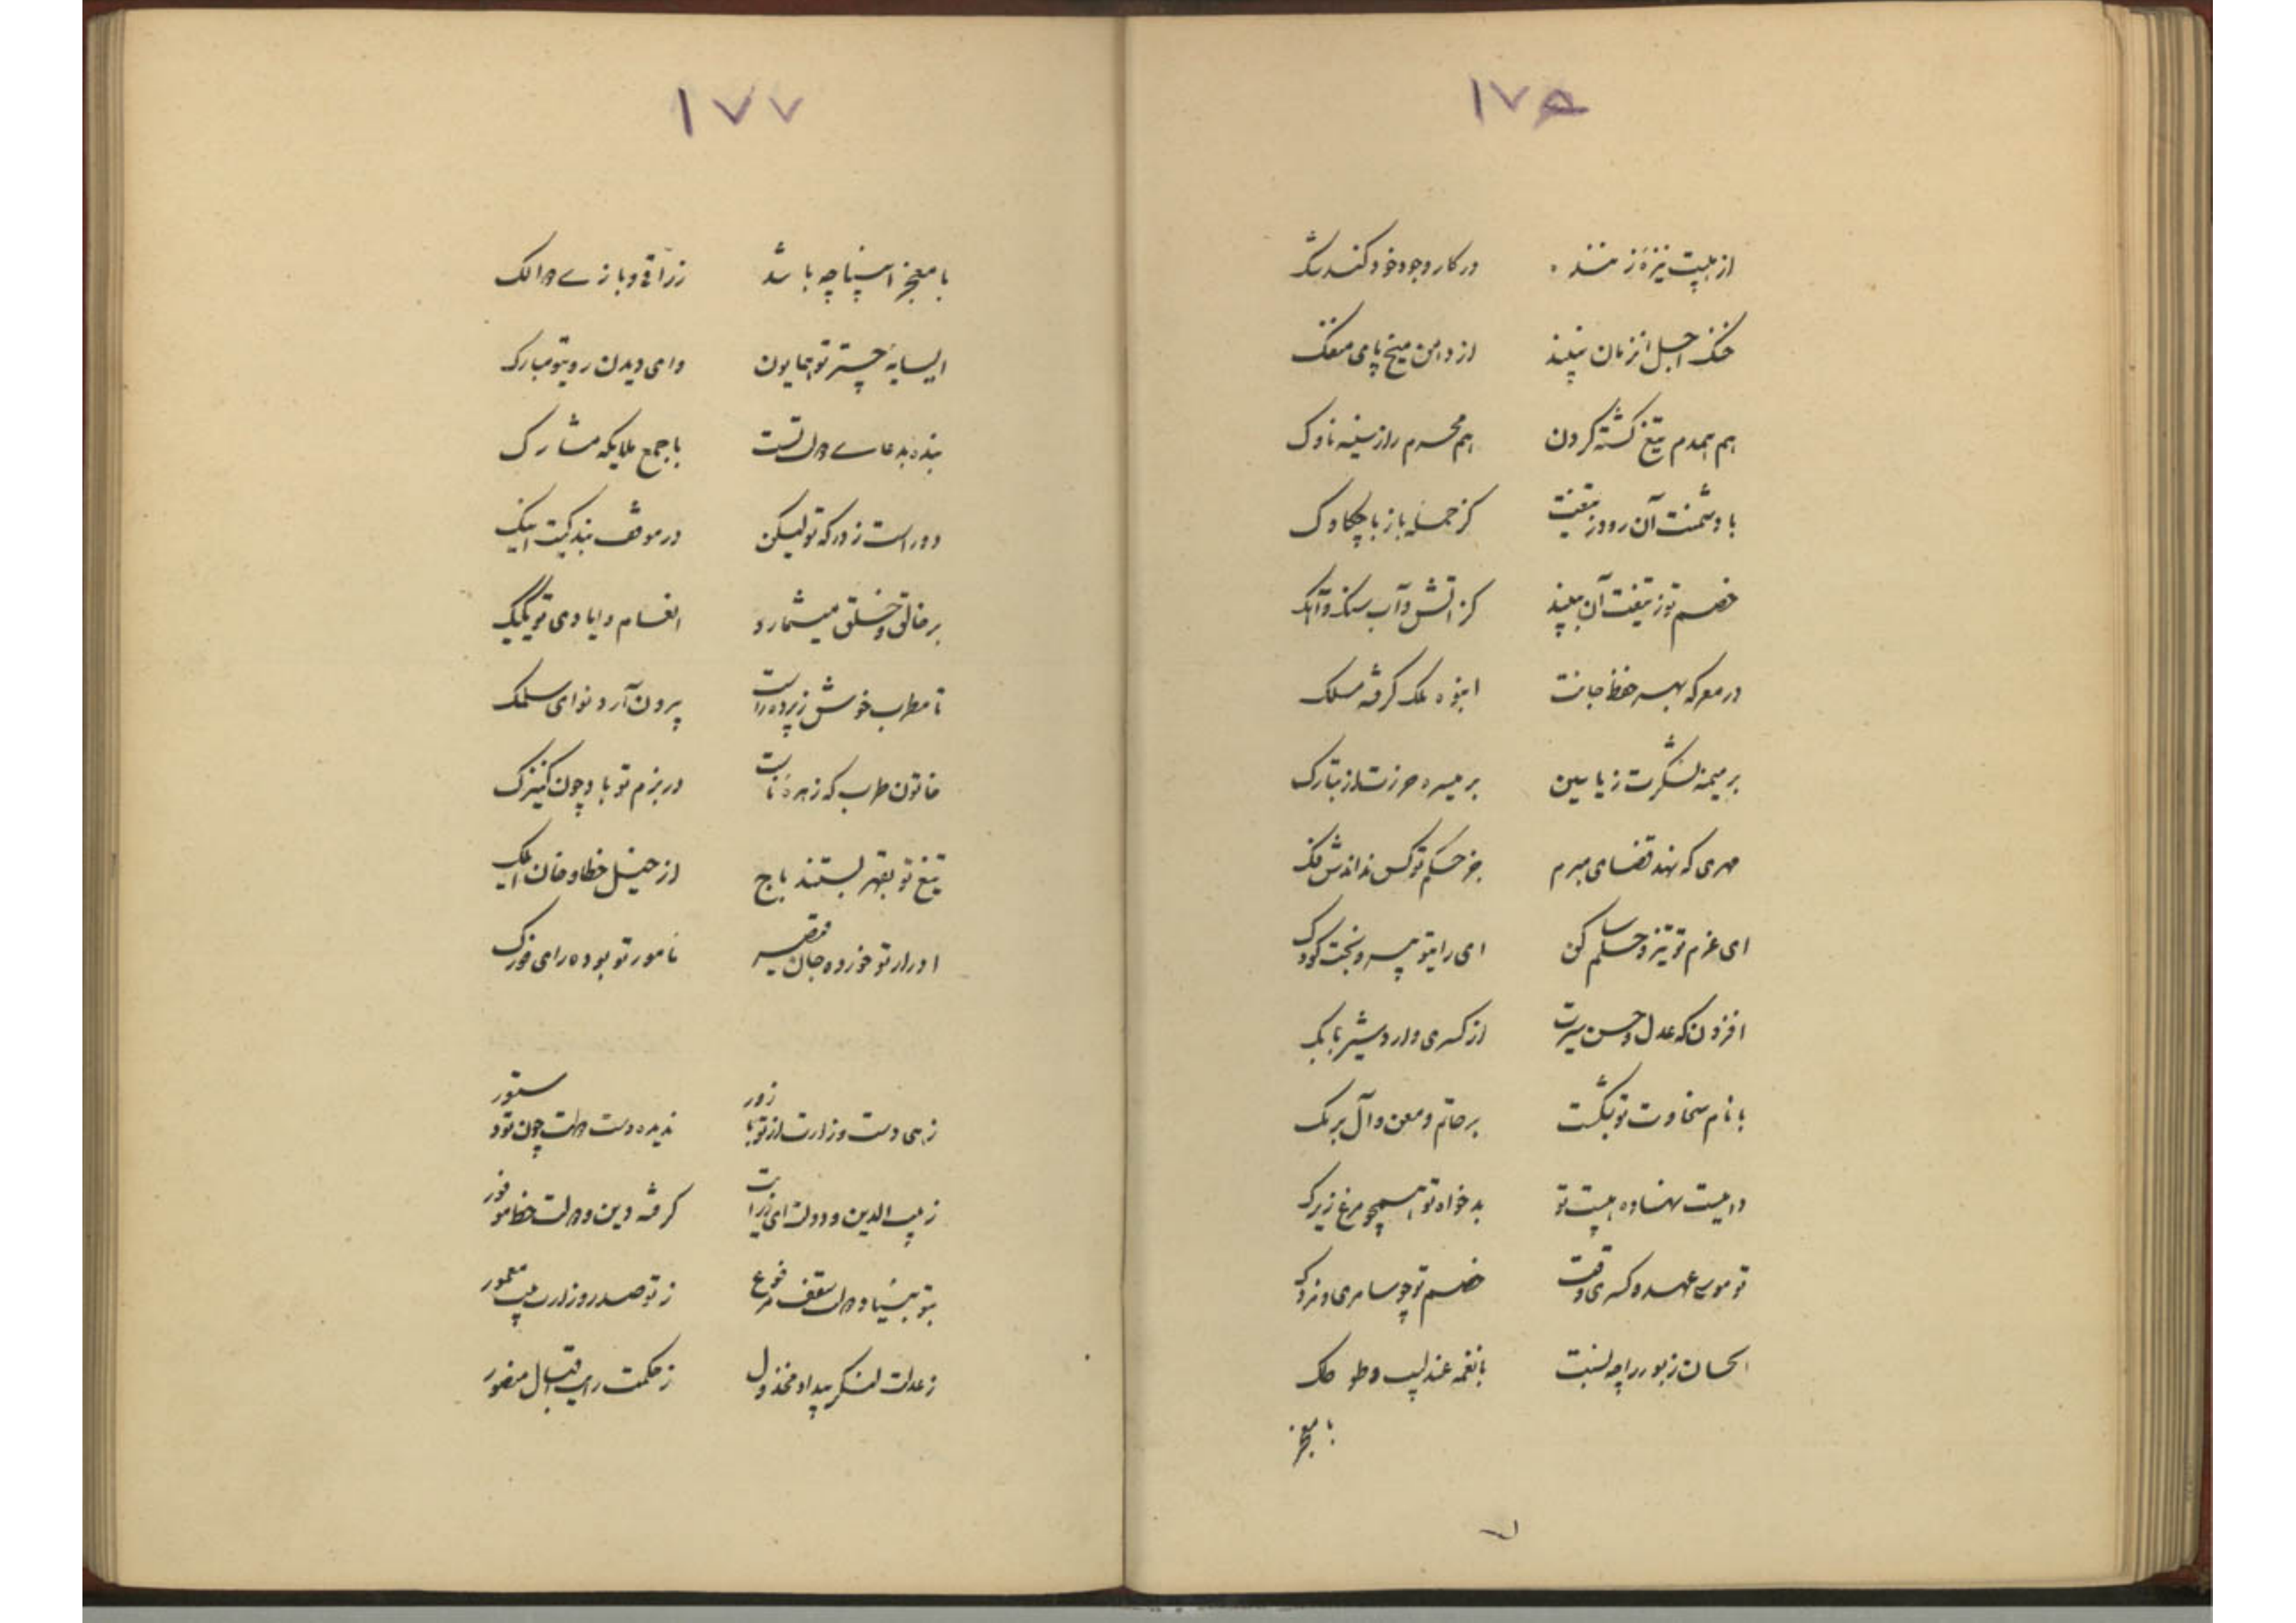 ١٧۶
از هیبت نیزه‌ز منند در کار وجود خود کند شک
خنگ اجل از زمان نبیند از دامن میخ پای منفک
هم همدم تیغ گشته گردن هم محرم راز سینه ناوک
با دشمنت آن رود ز تیغت کز حمله باز با چکاوک
خصم تو ز تیغت آن ببیند کز آتش و آب سنگ و آهک
در معرکه بهر حفظ جانت انبوه ملک گرفته مسلک
بر میمنه لشکرت ز یاسین بر میسره حرزت از تبارک
مهری که نهد قضای مبرم جز حکم تو کس نداندش فک
ای عزم تو تیز و حلم ساکن ای رایتو پیر و بختت کودک
افزون که عدل و حسن سیرت از کسری و اردشیر بابک
با نام سخاوت تو بگذشت بر حاتم و معن و آل برمک
در هیبت نهاده هیبت تو بدخواه تو همچو مرغ زیرک
تو موسی عهد و کسری وقت خصم تو چو سامری و مزدک
الحان زبور را چه نسبت با نغمه عندلیب و طو طک
با معجز
١٧٧
با معجز انبیا چه باشد زراقی و بازی دالک
ای سایه چتر تو همایون وای دیدن رویتو مبارک
بنده بدعای دولتست با جمع ملایکه مشارک
دور است ز درکه تو لیکن در موقف بندکیت اینک
بر خالق و خلق میشمارد انعام و ایادی تو یکیک
تا مطرب خوش ز پرده راست بیرون آرد نوای سلمک
خاتون طرب که زهره اتست در بزم تو باد چون کنیزک
تیغ تو بقهر بستند باج از خیل خطا و خان ایلک
ادرار تو خورده جان قیصر نامور تو بوده رای فورک
زهی دست وزارت از تو با زور ندیده دست دولت چون تو دستور
زیب الدین و دولت ای ز رایت کرفته دین و دولت حظ موفور
بتو بنیاد دولت سقف مرفوع ز تو صدر وزارت بیت معمور
ز عدلت لشکر بیداد مخذول ز حکمت رایت اقبال منصور